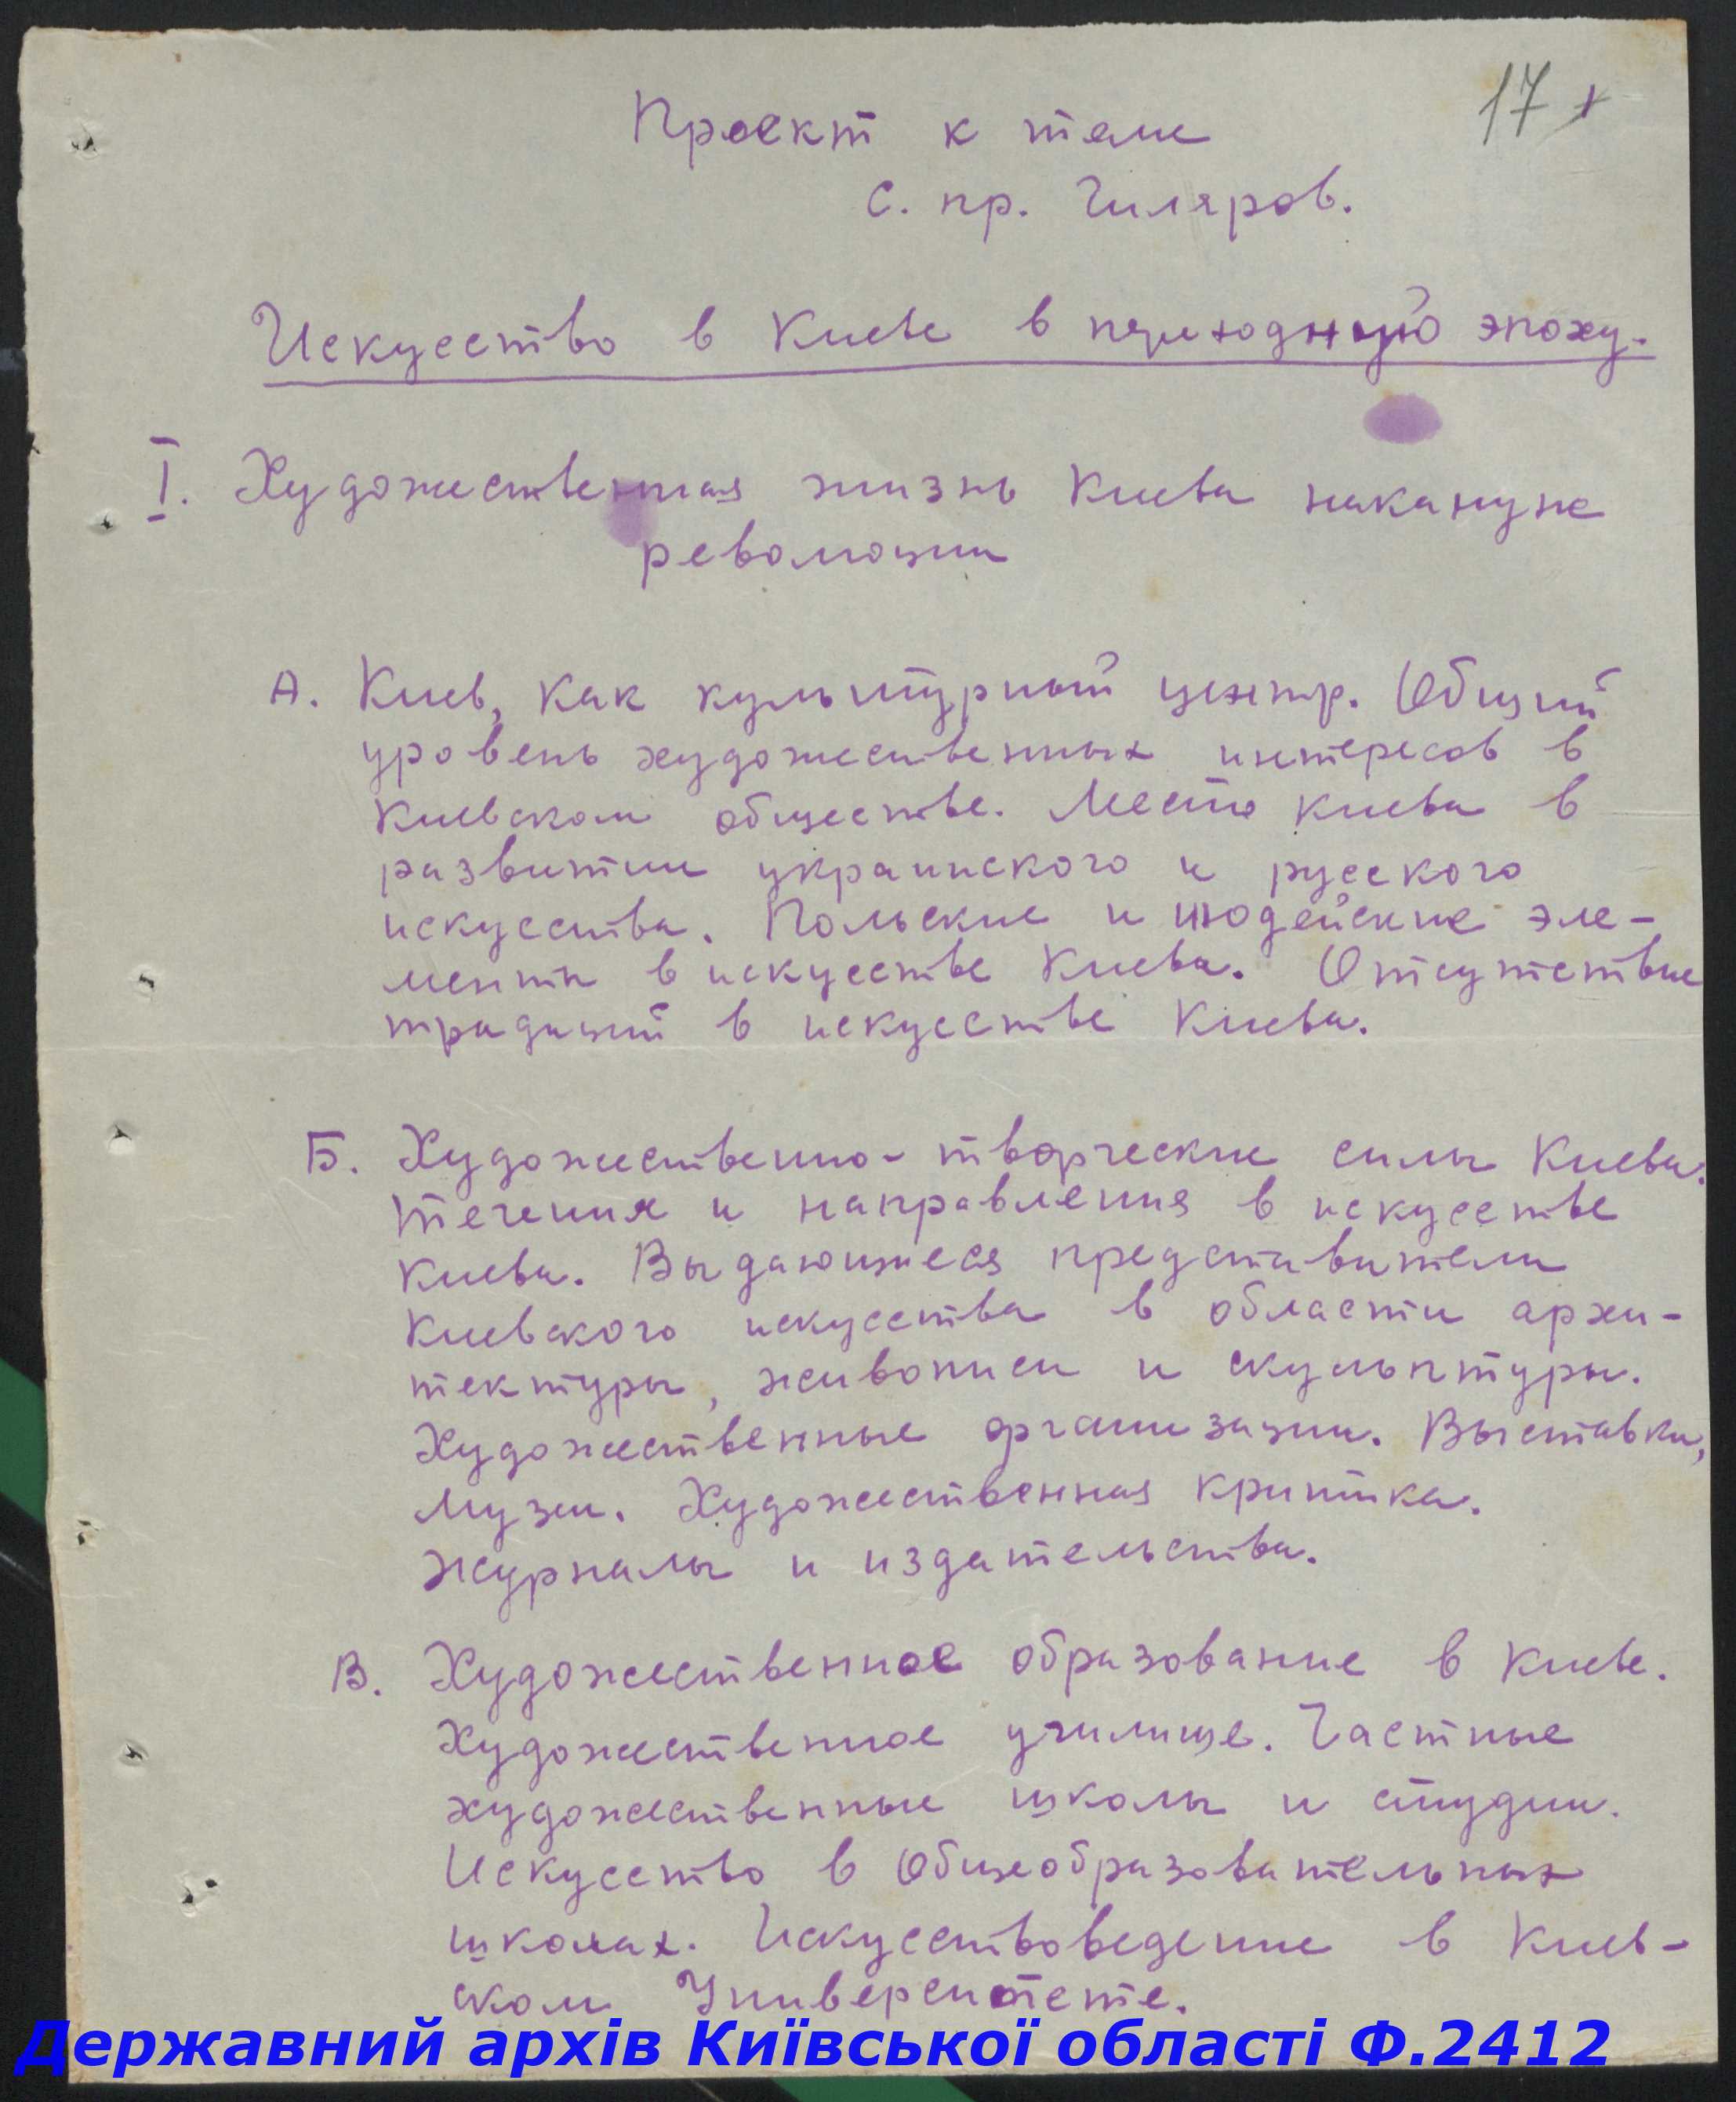 17
Проект к теме
С. пр. Гиляров.
Искусство в Киеве в переходную эпоху.
I. Художественная жизнь Киева накануне
революции
А. Киев, как культурный центр. Общий
уровень художественных интересов в
Киевском обществе. Место Киева в
развитии украинского и русского
искусства. Польские и июдейские эле-
менты в искусстве Киева. Отсутствие
традиций в искусстве Киева.
Б. Художественно-творческие силы Киева.
Течения и направления в искусстве
Киева. Выдающиеся представители
Киевского искусства в области архи-
тектуры, живописи и скульптуры.
Художественные организации. Выставки,
Музеи. Художественная критика.
Журналы и издательства.
В. Художественное образование в Киеве.
Художественное училище. Частные
художественные школы и студии.
Искусство в Общеобразовательных
школах. Искусствоведение в Киев-
ском Университете.
Державний архів Київської області Ф.2412